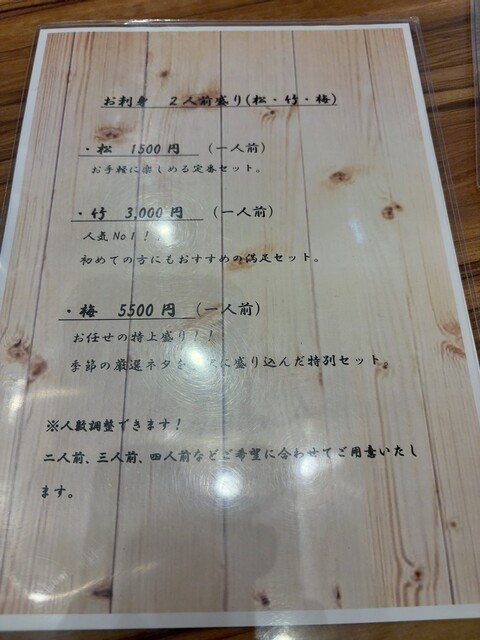 お刺身　２人前盛り(松・竹・梅)
・松　1500 円　（一人前）
お手軽に楽しめる定番セット。
・竹　3,000 円　（一人前）
人気 No１！
初めての方にもおすすめの満足セット。
・梅　5500 円　（一人前）
お任せの特上盛り！！
季節の厳選ネタを に盛り込んだ特別セット。
※人数調整できます！
二人前、三人前、四人前などご希望に合わせてご用意いたし
ます。